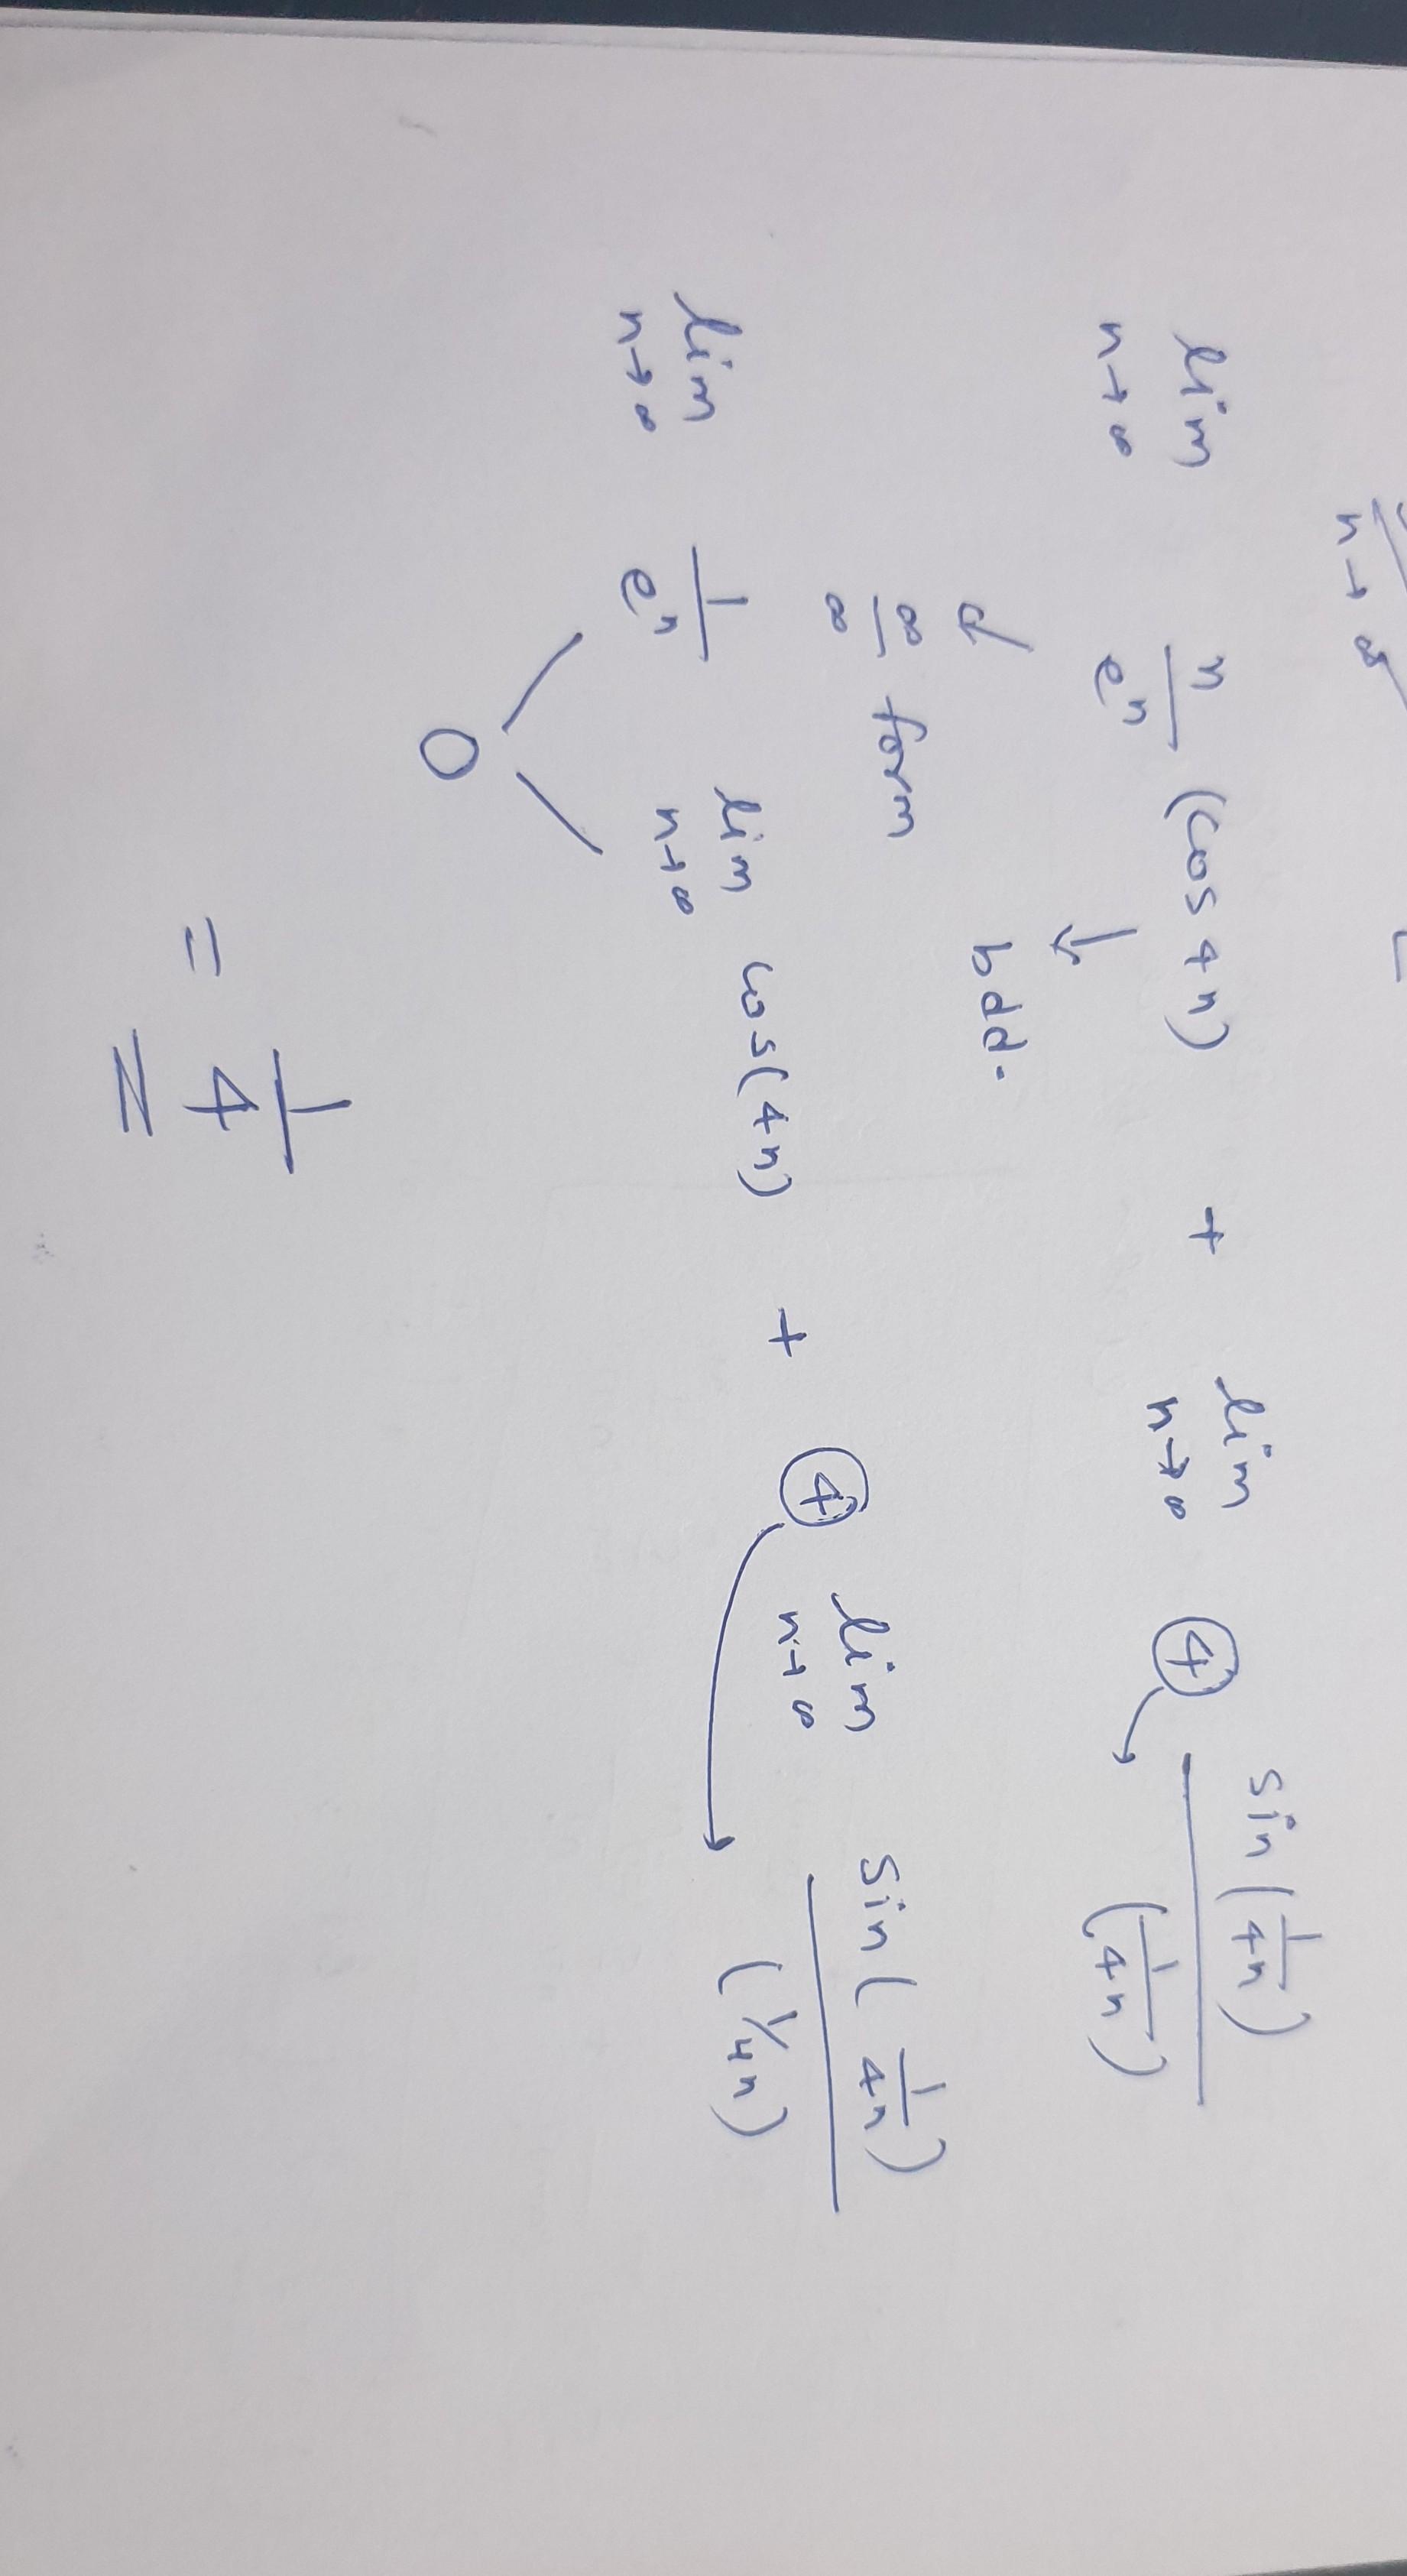 n→∞
lim n→∞ n/eⁿ (cos 4n) + lim n→∞ ④ sin(1/4n) / (1/4n)
∞/∞ form bdd.
lim n→∞ 1/eⁿ lim n→∞ cos(4n) + ④ lim n→∞ sin(1/4n) / (1/4n)
0
= 1/4